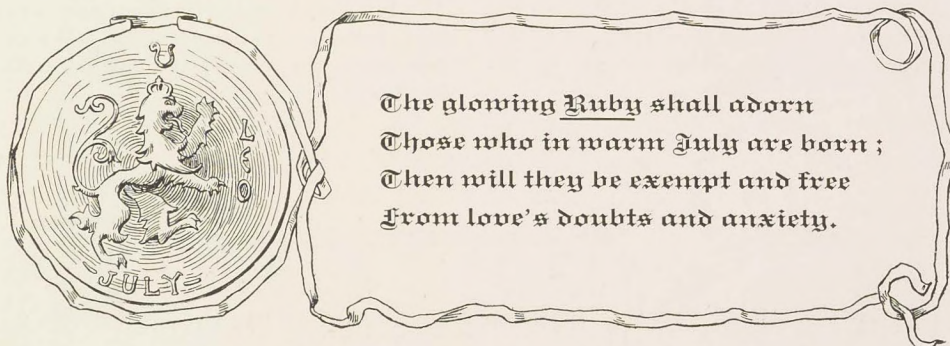 LEO
JULY
The glowing Ruby shall adorn
Those who in warm July are born;
Then will they be exempt and free
From love's doubts and anxiety.